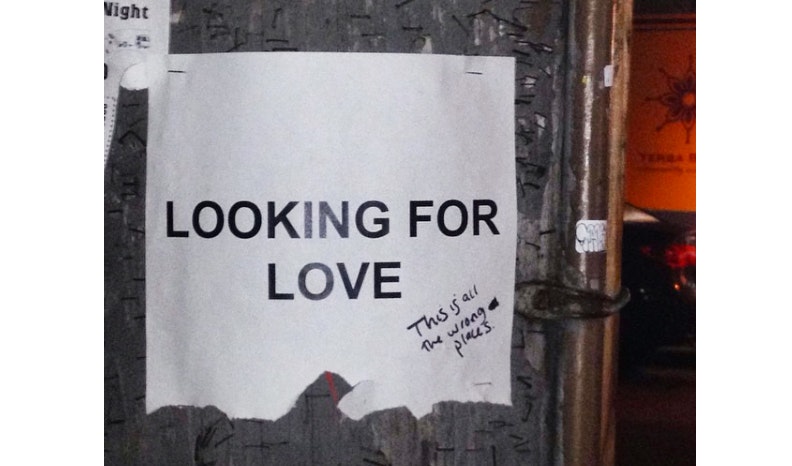 Night
LOOKING FOR
LOVE
This is all
the wrong
places.
TERRA